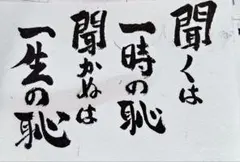 聞くは
一時の恥
聞かぬは
一生の恥